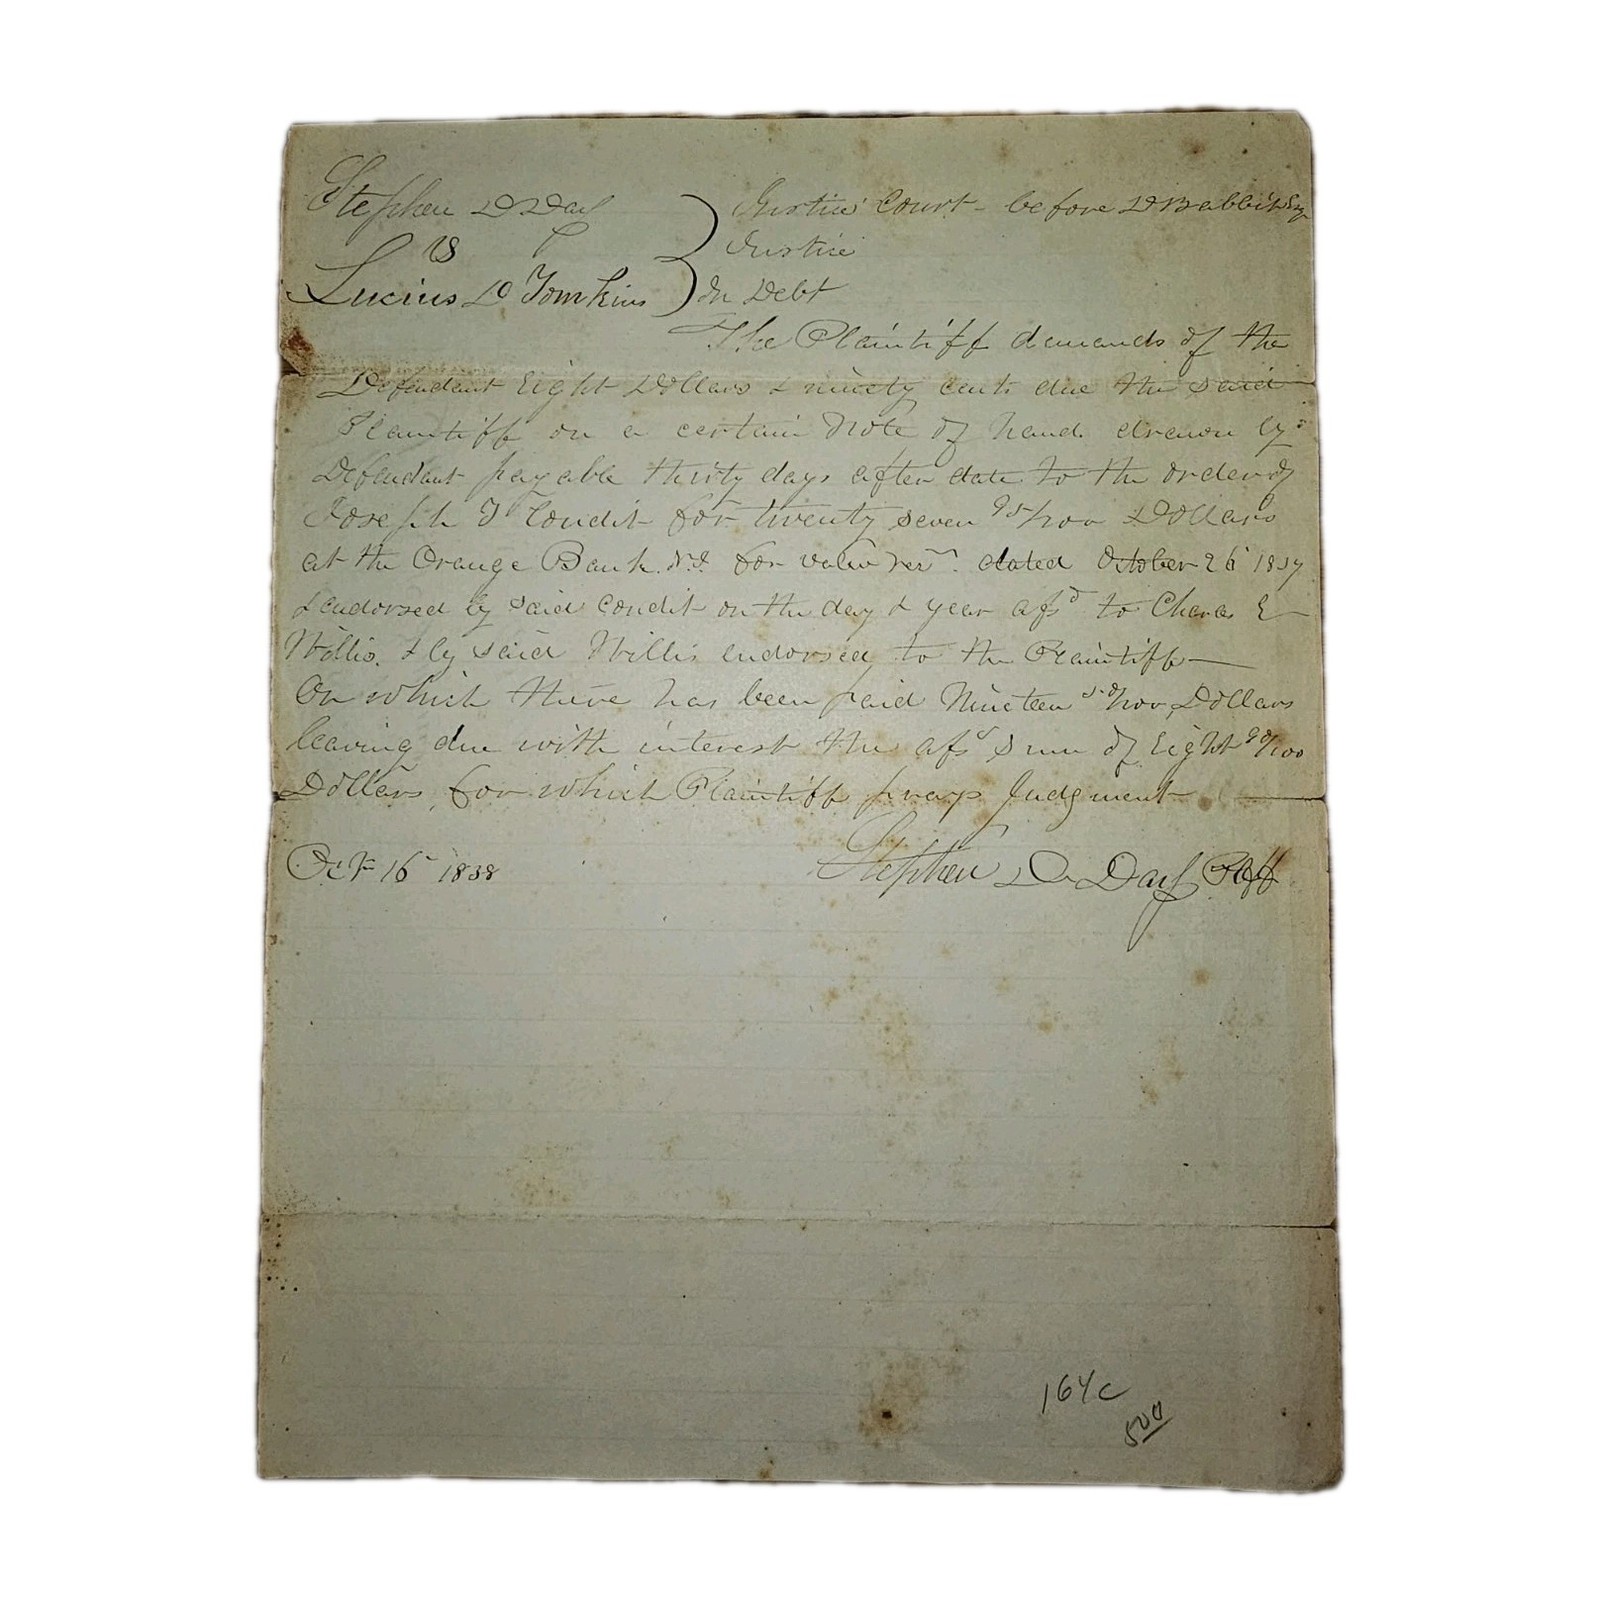 Stephen D Day
vs
Lucius D Tomkins
Justice Court - before D Babbit Esq
Justice
In Debt
The Plaintiff demands of the
Defendant Eight Dollars & ninety cents due the said
Plaintiff on a certain Note of hand drawn by
Defendant payable thirty days after date to the order of
Joseph T Condit for twenty seven 95/100 Dollars
at the Orange Bank N.J. for value recd. dated October 26 1837
& endorsed by said Condit on the day & year afsd to Charles E
Willis. & by said Willis endorsed to the Plaintiff —
On which there has been paid Nineteen 50/100 Dollars
leaving due with interest the afsd sum of Eight 90/100
Dollars, for which Plaintiff prays Judgment —
Oct 16 1838
Stephen D. Day Plff
164c
500